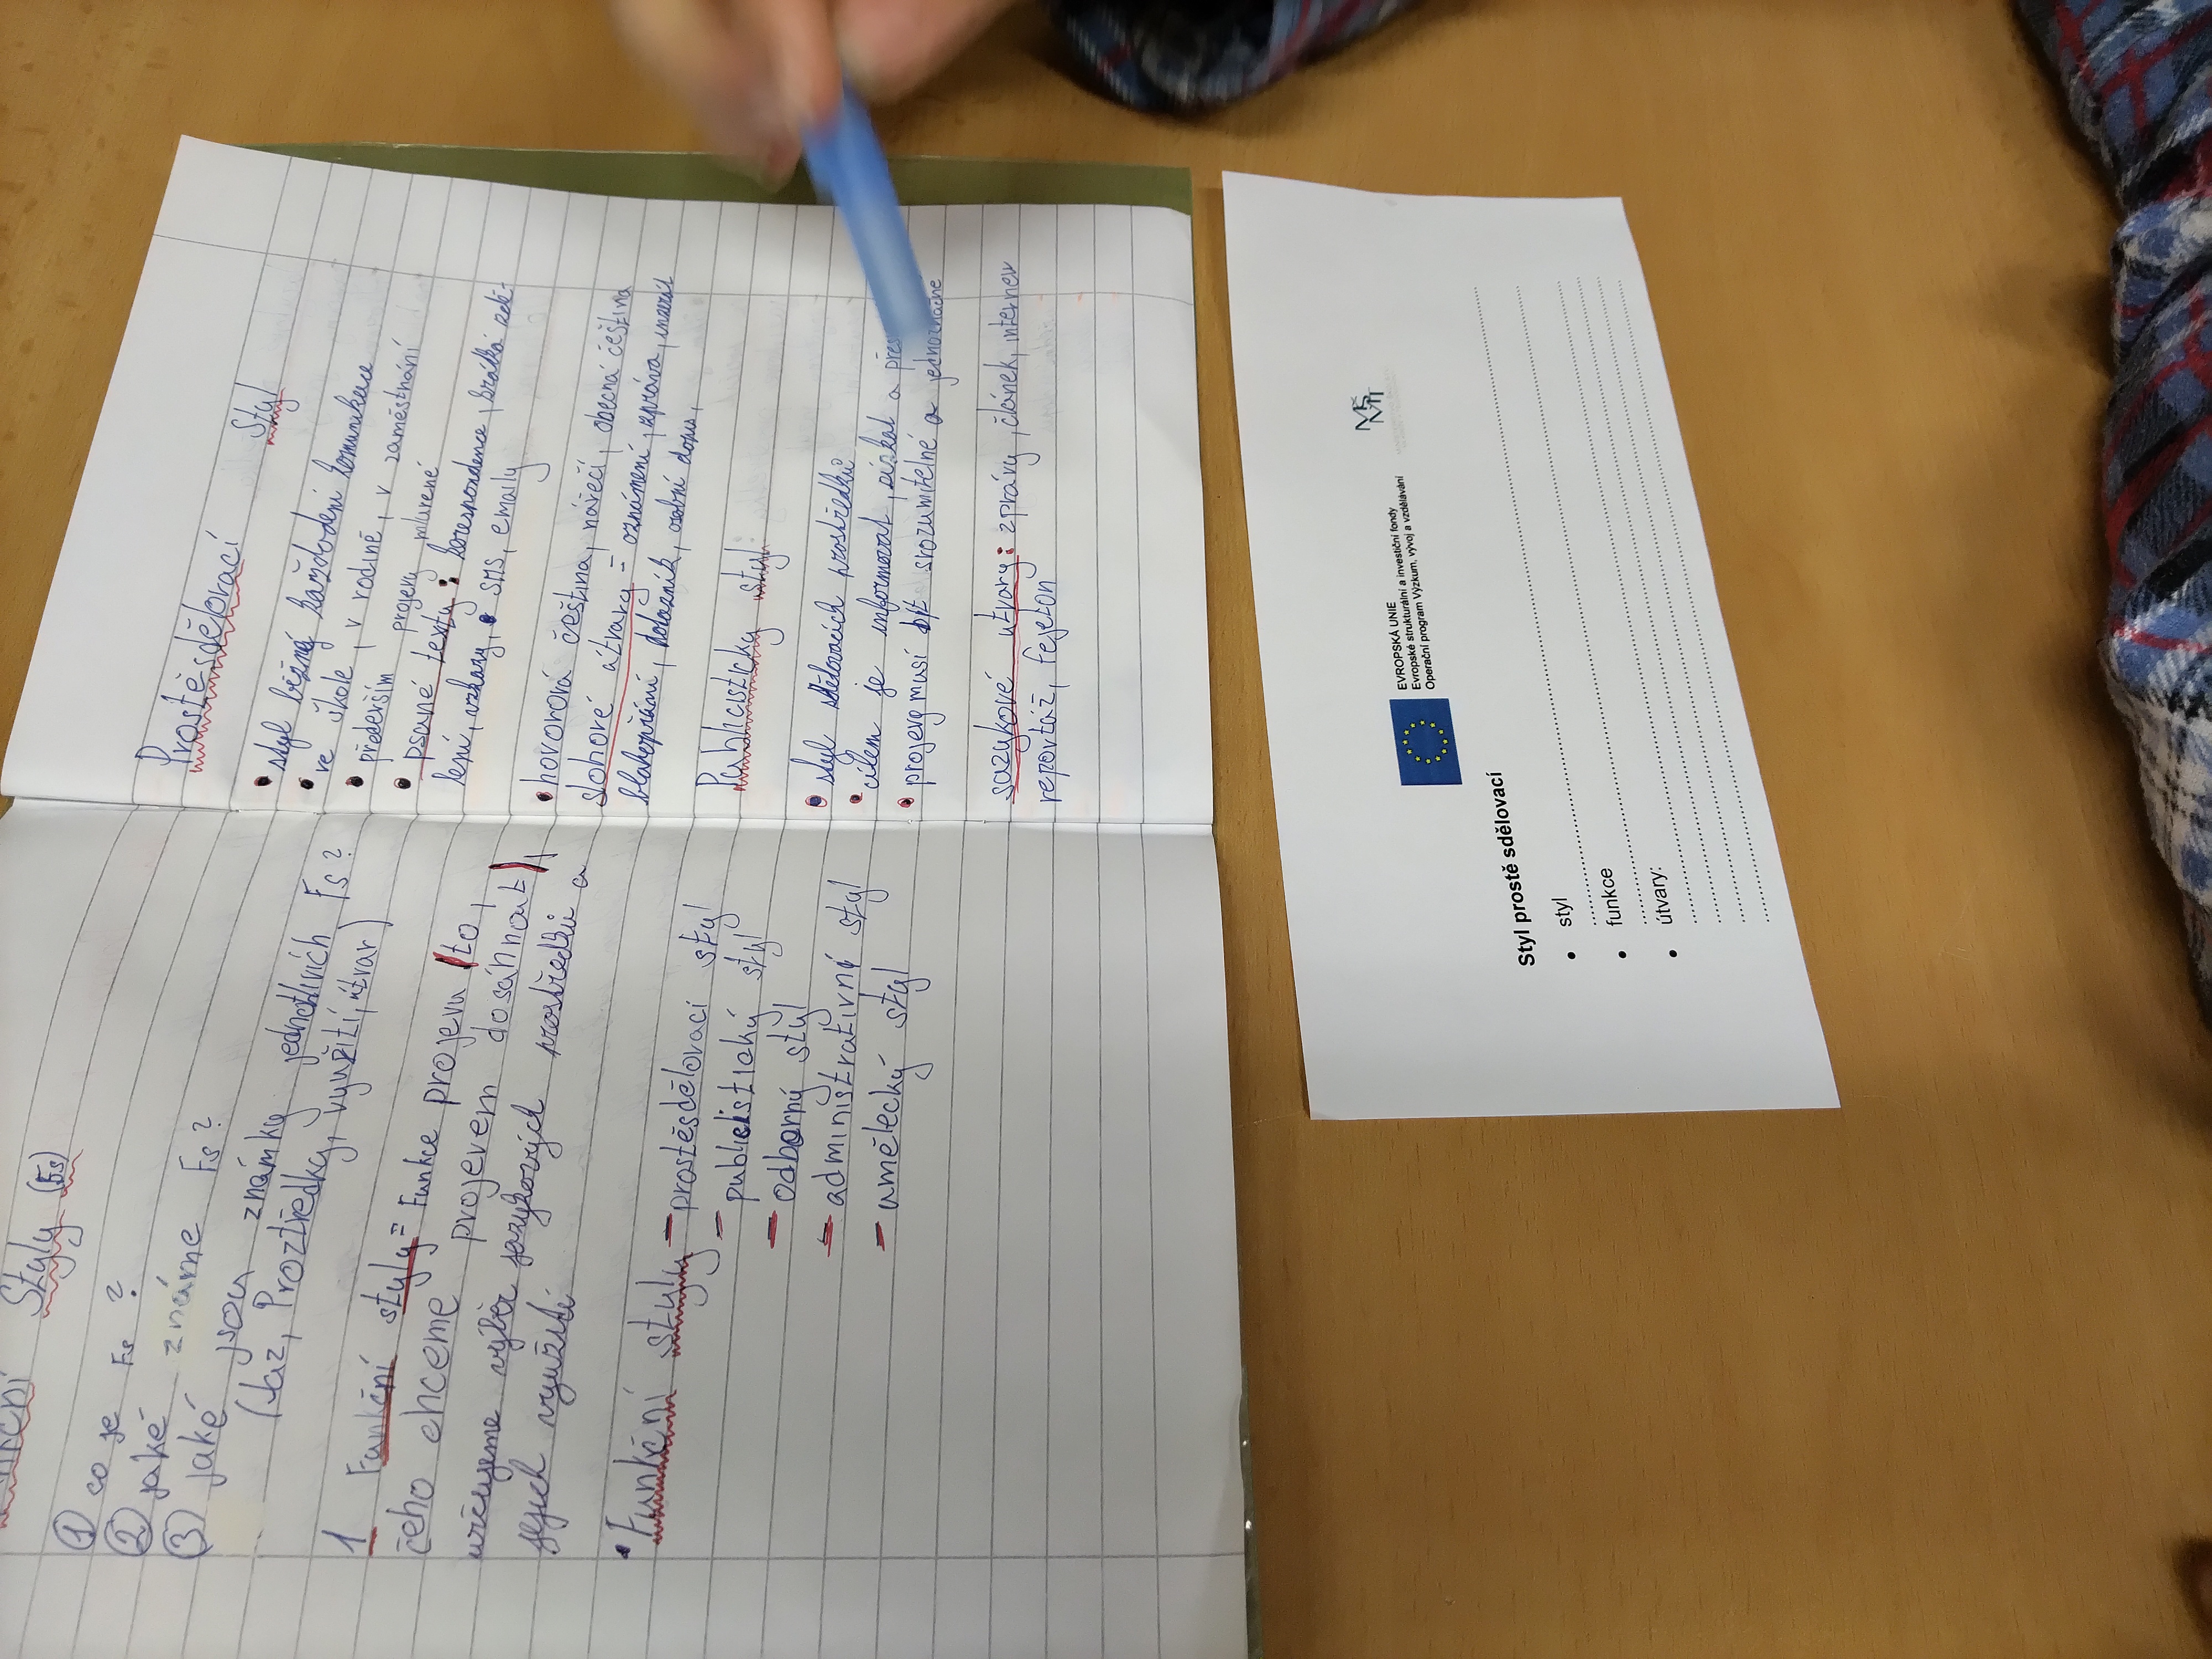 Styly (Fs)
① co je Fs ?
② jaké známe Fs ?
③ jaké jsou známky jednotlivích Fs ?
(Jaz, Proztředky, využití, útvar)
1 Funkční styly = Funkce projevu (to,
čeho chceme projevem dosáhnout)
určujeme výběr jazykových prostředků a
jejich využití
• Funkční styly - prostěsdělovací styl
- publicistický styl
- odborný styl
- administrativní styl
- umělecký styl
Prostěsdělovací styl
• styl běžný každodení komunikace
• ve škole, v rodině, v zaměstnání
• především projevy mluvené
• psané texty: korespondence, krátká
vzkazy, SMS, emaily
• hovorová čeština, nářečí, obecná čeština
slohové útvary = oznámení, zpráva, inzerát
blahopřání, dotazník, osobní dopis,
Publicistický styl:
• styl sdělovacích prostředků
• cílem je informovat, získat a
• projevy musí být srozumitelné a jednoznačné
jazykové útvary: zprávy, článek, internew
reportáž, fejeton
EVROPSKÁ UNIE
Evropské strukturální a investiční fondy
Operační program Výzkum, vývoj a vzdělávání
MŠMT
Styl prostě sdělovací
• styl
• funkce
• útvary: